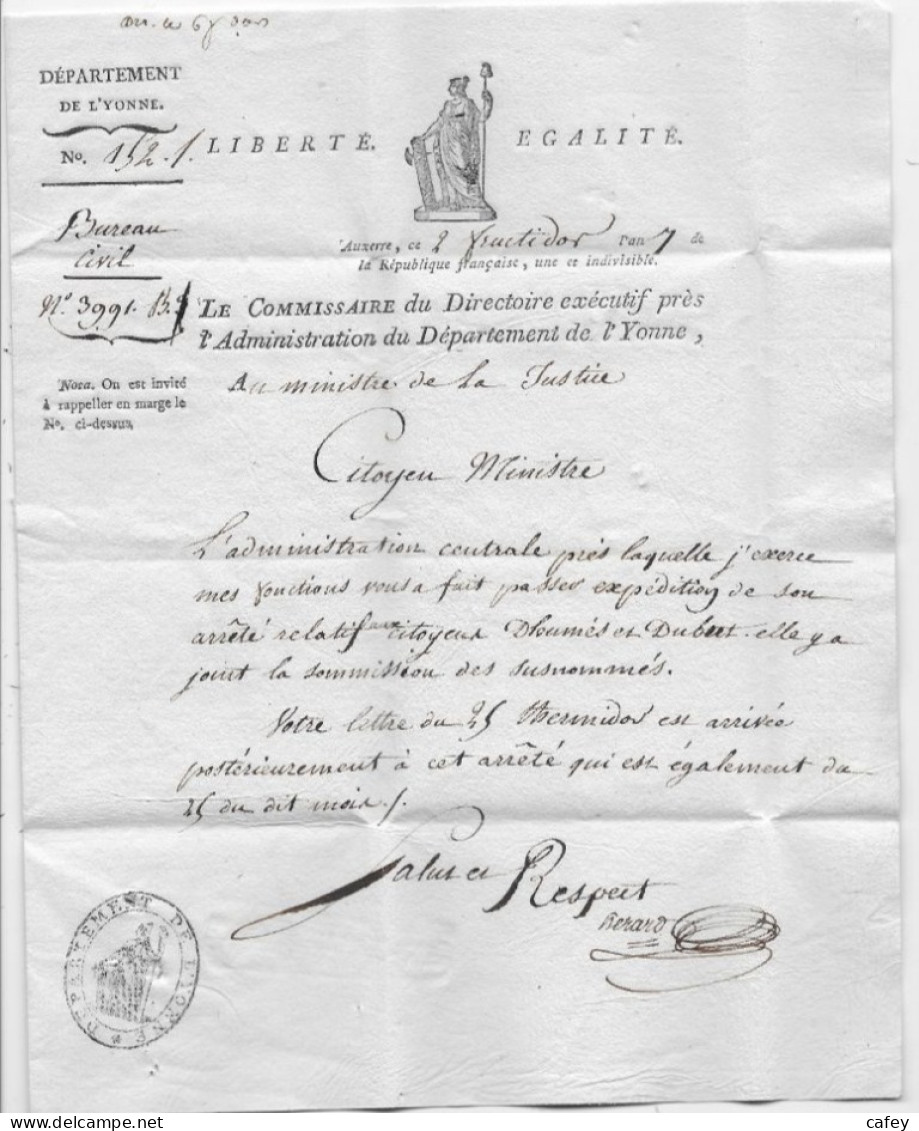 DÉPARTEMENT
DE L'YONNE.
No. 152.
LIBERTÉ. EGALITÉ.
Bureau
Civil
N.º 3991. B.
Nota. On est invité
à rappeller en marge le
No. ci-dessus.
Auxerre, ce 2 fructidor l'an 7 de
la République française, une et indivisible.
LE COMMISSAIRE du Directoire exécutif près
l'Administration du Département de l'Yonne,
Au ministre de la Justice
Citoyen Ministre
L'administration centrale près laquelle j'exerce
mes fonctions vous a fait passer expédition de son
arrêté relatif aux citoyens Dhumés et Dubut. elle y a
joint la sommission des susnommés.
Votre lettre du 25 thermidor est arrivée
postérieurement à cet arrêté qui est également du
25 du dit mois.
Salut et Respect
herard
DEPARTEMENT DE L'YONNE
cafey